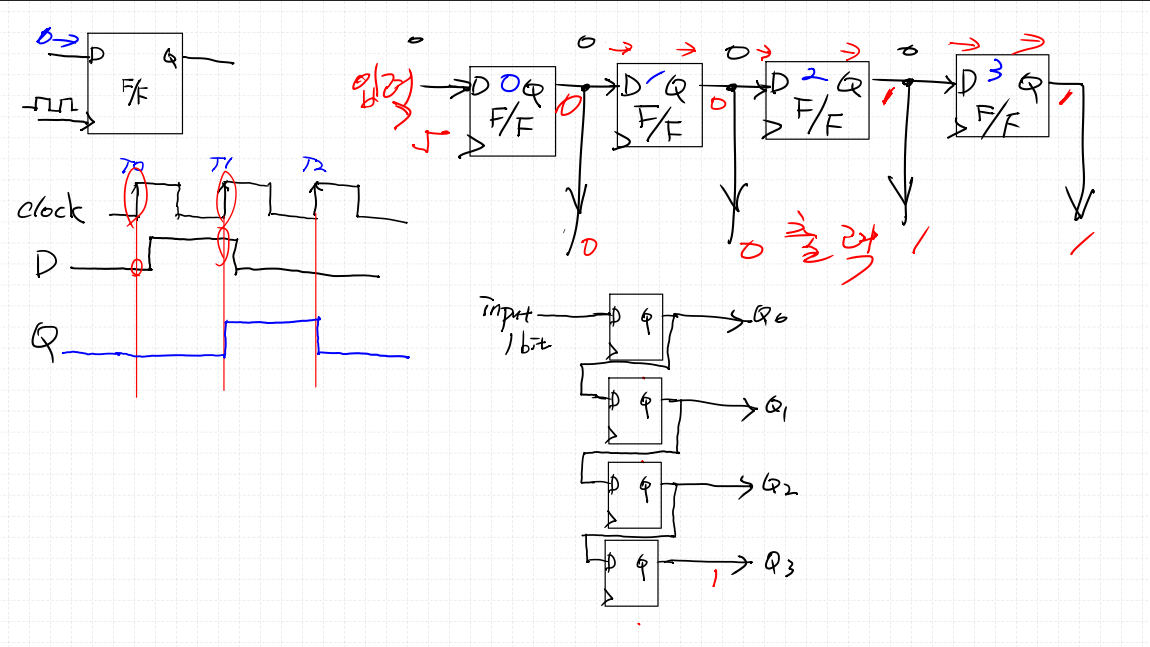 0
D Q
F/F
T0 T1 T2
clock
D
Q
0 0 0 0
입력
D 0 Q
F/F
0
D 1 Q
F/F
0
D 2 Q
F/F
1
D 3 Q
F/F
1
0 0 출력 1 1
input
1 bit
D Q Q0
D Q Q1
D Q Q2
D Q 1 Q3